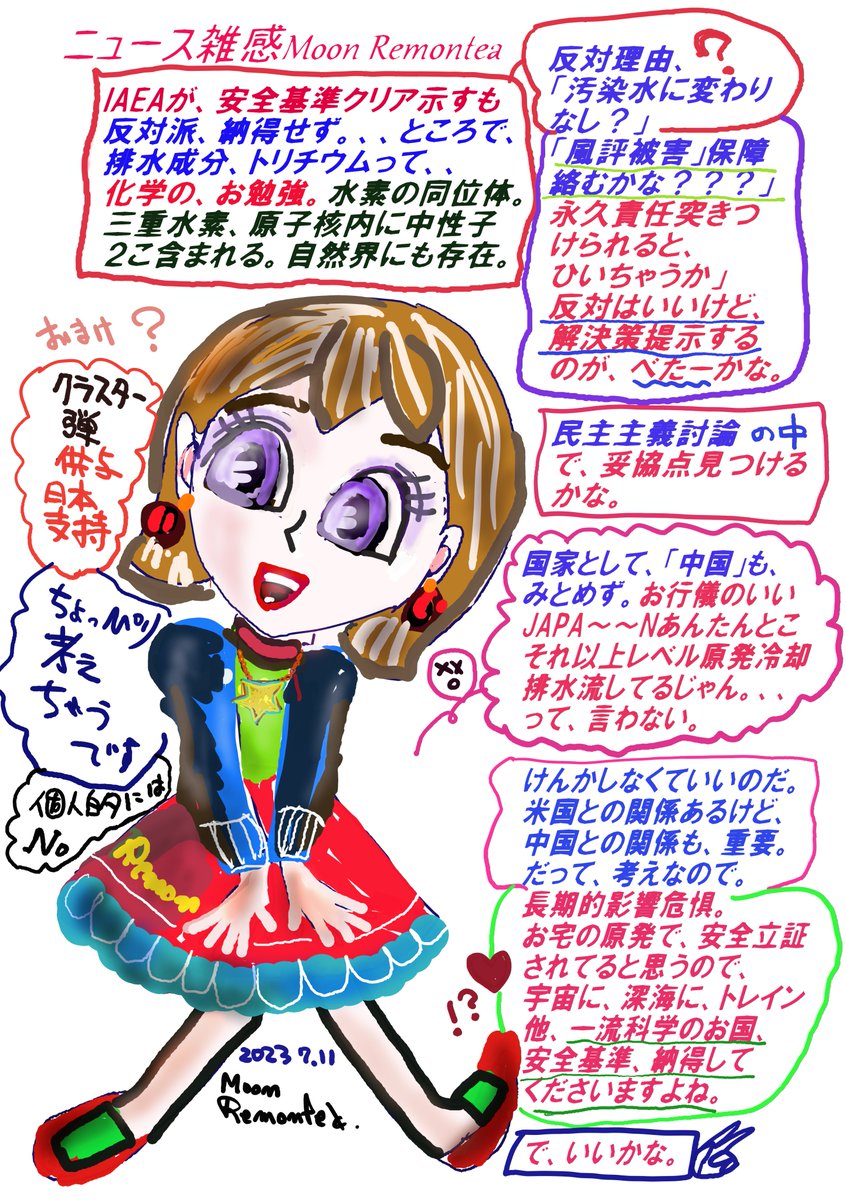 ニュース雑感Moon Remontea
IAEAが、安全基準クリア示すも
反対派、納得せず。、、ところで、
排水成分、トリチウムって、、
化学の、お勉強。水素の同位体。
三重水素、原子核内に中性子
2こ含まれる。自然界にも存在。
?
反対理由、
「汚染水に変わり
なし?」
「風評被害」保障
絡むかな???」
永久責任突きつ
けられると、
ひいちゃうか」
反対はいいけど、
解決策提示する
のが、べたーかな。
民主主義討論 の中
で、妥協点見つける
かな。
国家として、「中国」も、
みとめず。お行儀のいい
JAPA~~Nあんたんとこ
それ以上レベル原発冷却
排水流してるじゃん。、、
って、言わない。
けんかしなくていいのだ。
米国との関係あるけど、
中国との関係も、重要。
だって、考えなので。
長期的影響危惧。
お宅の原発で、安全立証
されてると思うので、
宇宙に、深海に、トレイン
他、一流科学のお国、
安全基準、納得して
くださいますよね。
で、いいかな。
おまけ?
クラスター
弾
供与
日本
支持
ちょっぴり
考え
ちゃう
です
個人的には
No。
Remon
!?
2023 7.11
Moon
Remontea.